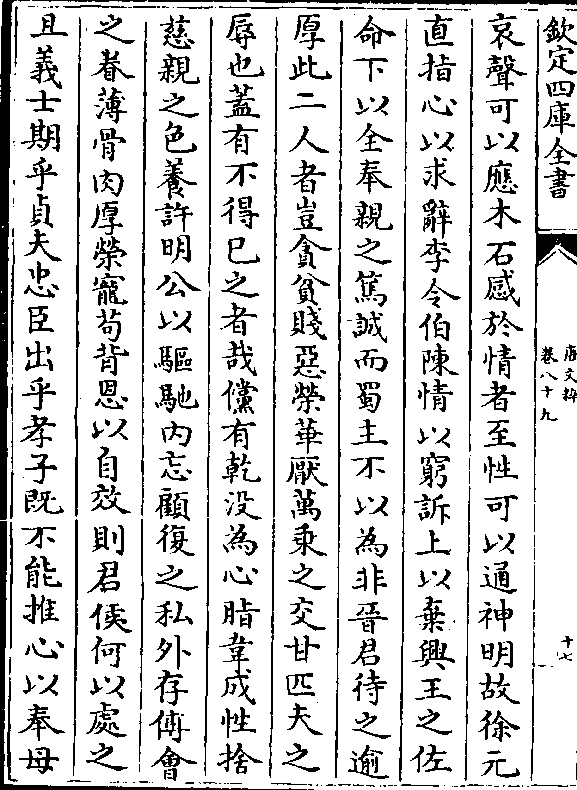 欽定四庫全書
唐文粹
卷八十九
十七
哀聲可以應木石感於情者至性可以通神明故徐元
直指心以求辭李令伯陳情以窮訴上以棄興王之佐
命下以全奉親之篤誠而蜀主不以為非晉君待之逾
厚此二人者豈貪貧賤惡榮華厭萬乘之交甘匹夫之
辱也蓋有不得已之者哉儻有乾没為心脂韋成性捨
慈親之色養許明公以驅馳内忘顧復之私外存傅會
之眷薄骨肉厚榮寵苟背恩以自效則君侯何以處之
且義士期乎貞夫忠臣出乎孝子既不能推心以奉母